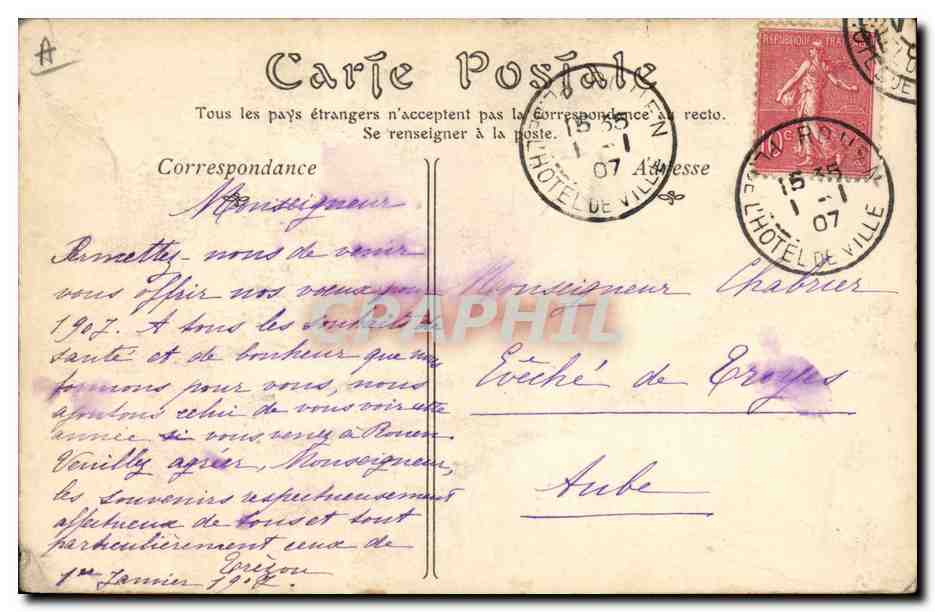 A
Carte Postale
Tous les pays étrangers n'acceptent pas la correspondance au recto.
Se renseigner à la poste.
Correspondance
Adresse
RÉPUBLIQUE FRANÇAISE
10c
ROUEN
15 35
1 - 1
07
L'HÔTEL DE VILLE
ROUEN
15 35
1 - 1
07
L'HÔTEL DE VILLE
Monseigneur
Permettez-nous de venir
vous offrir nos vœux pour
1907. A tous les souhaits de
santé et de bonheur que nous
formons pour vous, nous
ajoutons celui de vous voir cette
année si vous venez à Rouen
Veuillez agréer, Monseigneur,
les souvenirs respectueusement
affectueux de tous et tout
particulièrement ceux de
Trézou
1er Janvier 1907.
Monseigneur Chabrier
Evêché de Troyes
Aube
CPAPHIL